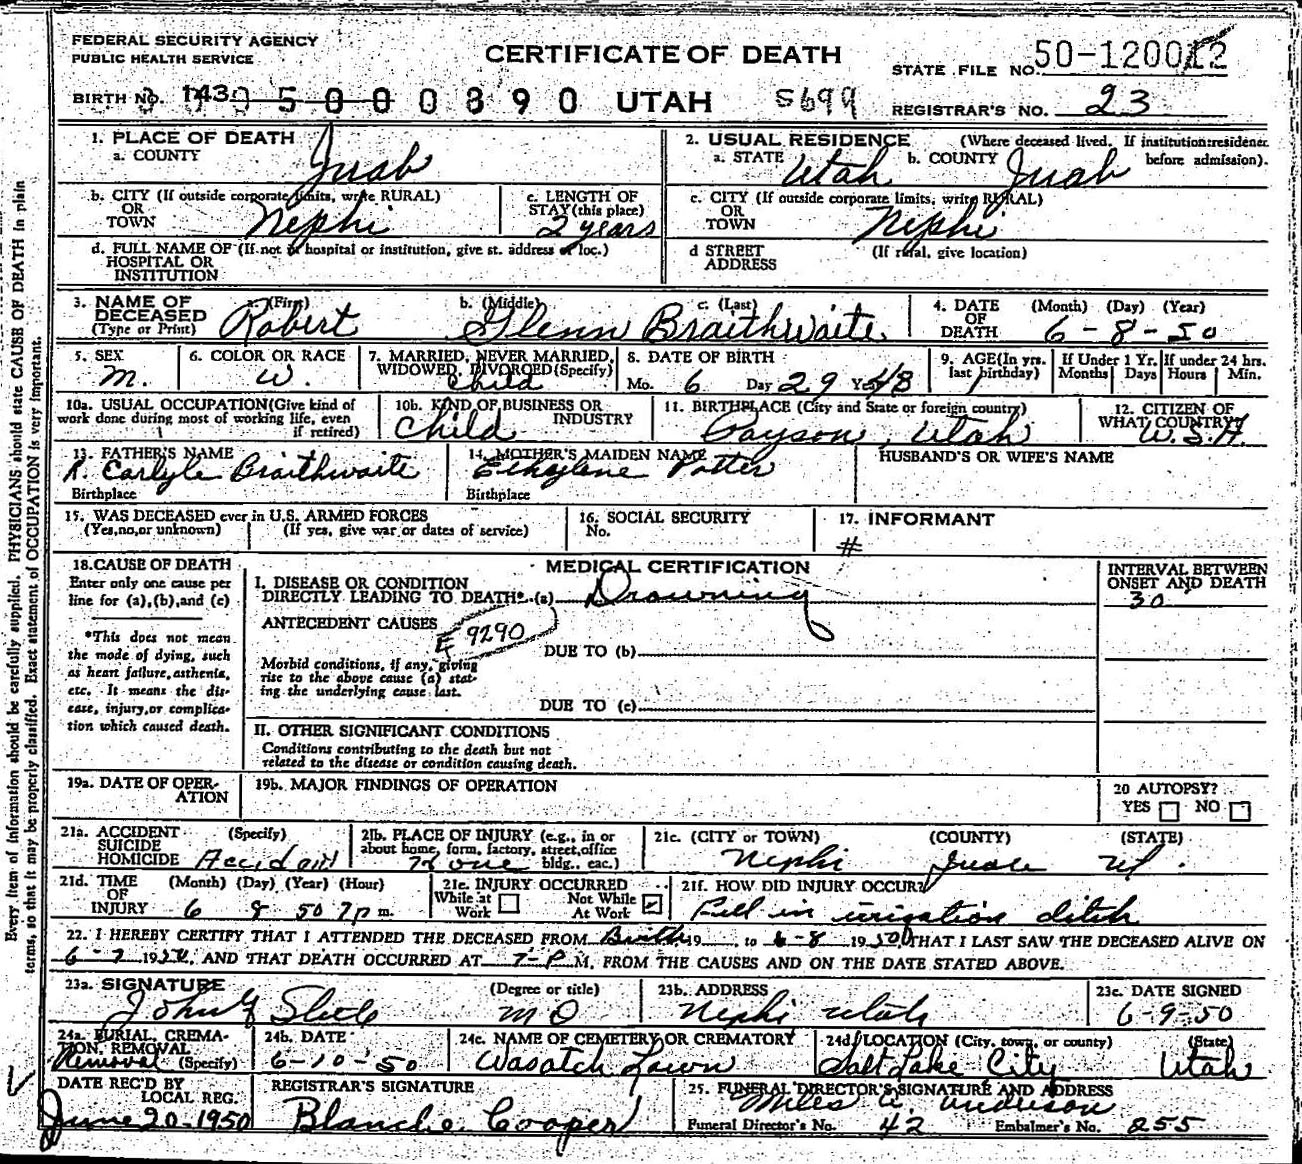 FEDERAL SECURITY AGENCY
PUBLIC HEALTH SERVICE
CERTIFICATE OF DEATH
STATE FILE NO. 50-12002
BIRTH No. 143 5 0 0 0 8 9 0 UTAH 5699
REGISTRAR'S NO. 23
1. PLACE OF DEATH
a. COUNTY Juab
2. USUAL RESIDENCE (Where deceased lived. If institution: residence before admission).
a. STATE Utah b. COUNTY Juab
b. CITY (If outside corporate limits, write RURAL)
OR
TOWN Nephi
c. LENGTH OF
STAY (this place)
2 years
c. CITY (If outside corporate limits, write RURAL)
OR
TOWN Nephi
d. FULL NAME OF (If not in hospital or institution, give st. address or loc.)
HOSPITAL OR
INSTITUTION
d STREET (If rural, give location)
ADDRESS
3. NAME OF DECEASED (Type or Print)
a. (First) Robert b. (Middle) Glenn c. (Last) Braithwaite
4. DATE OF DEATH (Month) (Day) (Year)
6-8-50
5. SEX
M.
6. COLOR OR RACE
W.
7. MARRIED, NEVER MARRIED,
WIDOWED, DIVORCED (Specify)
Child
8. DATE OF BIRTH
Mo. 6 Day 29 Yr. 48
9. AGE (In yrs. last birthday)
1
If Under 1 Yr.
Months Days
If under 24 hrs.
Hours Min.
10a. USUAL OCCUPATION (Give kind of
work done during most of working life, even
if retired)
10b. KIND OF BUSINESS OR
INDUSTRY
Child
11. BIRTHPLACE (City and State or foreign country)
Payson, Utah
12. CITIZEN OF
WHAT COUNTRY?
U.S.A
13. FATHER'S NAME
R. Carlyle Braithwaite
Birthplace
14. MOTHER'S MAIDEN NAME
Ethylene Potter
Birthplace
HUSBAND'S OR WIFE'S NAME
15. WAS DECEASED ever in U.S. ARMED FORCES
(Yes, no, or unknown) (If yes, give war or dates of service)
16. SOCIAL SECURITY
No.
17. INFORMANT
#
18. CAUSE OF DEATH
Enter only one cause per
line for (a), (b), and (c)
*This does not mean
the mode of dying, such
as heart failure, asthenia,
etc. It means the dis-
ease, injury, or complica-
tion which caused death.
MEDICAL CERTIFICATION
I. DISEASE OR CONDITION
DIRECTLY LEADING TO DEATH* (a) Drowning
ANTECEDENT CAUSES
E 9290
DUE TO (b)
Morbid conditions, if any, giving
rise to the above cause (a) stat-
ing the underlying cause last.
DUE TO (c)
II. OTHER SIGNIFICANT CONDITIONS
Conditions contributing to the death but not
related to the disease or condition causing death.
INTERVAL BETWEEN
ONSET AND DEATH
30
19a. DATE OF OPER-
ATION
19b. MAJOR FINDINGS OF OPERATION
20 AUTOPSY?
YES NO
21a. ACCIDENT (Specify)
SUICIDE
HOMICIDE Accident
21b. PLACE OF INJURY (e.g., in or
about home, form, factory, street, office
bldg., eac.)
Home
21c. (CITY or TOWN) (COUNTY) (STATE)
Nephi Juab Ut.
21d. TIME OF INJURY (Month) (Day) (Year) (Hour)
6 8 50 7 p m.
21e. INJURY OCCURRED
While at Work Not While At Work
21f. HOW DID INJURY OCCUR?
Fell in irrigation ditch
22. I HEREBY CERTIFY THAT I ATTENDED THE DECEASED FROM Birth 19 , to 6-8 1950, THAT I LAST SAW THE DECEASED ALIVE ON
6-7 1950, AND THAT DEATH OCCURRED AT 7-P M, FROM THE CAUSES AND ON THE DATE STATED ABOVE.
23a. SIGNATURE (Degree or title)
John M D
23b. ADDRESS
Nephi Utah
23c. DATE SIGNED
6-9-50
24a. BURIAL, CREMA-
TION, REMOVAL
Removal (Specify)
24b. DATE
6-10-50
24c. NAME OF CEMETERY OR CREMATORY
Wasatch Lawn
24d. LOCATION (City, town, or county) (State)
Salt Lake City Utah
DATE REC'D BY
LOCAL REG.
June 20-1950
REGISTRAR'S SIGNATURE
Blanche Cooper
25. FUNERAL DIRECTOR'S SIGNATURE AND ADDRESS
Miles A. Anderson
Funeral Director's No. 42 Embalmer's No. 255
Every item of information should be carefully supplied. PHYSICIANS should state CAUSE OF DEATH in plain
terms, so that it may be properly classified. Exact statement of OCCUPATION is very important.